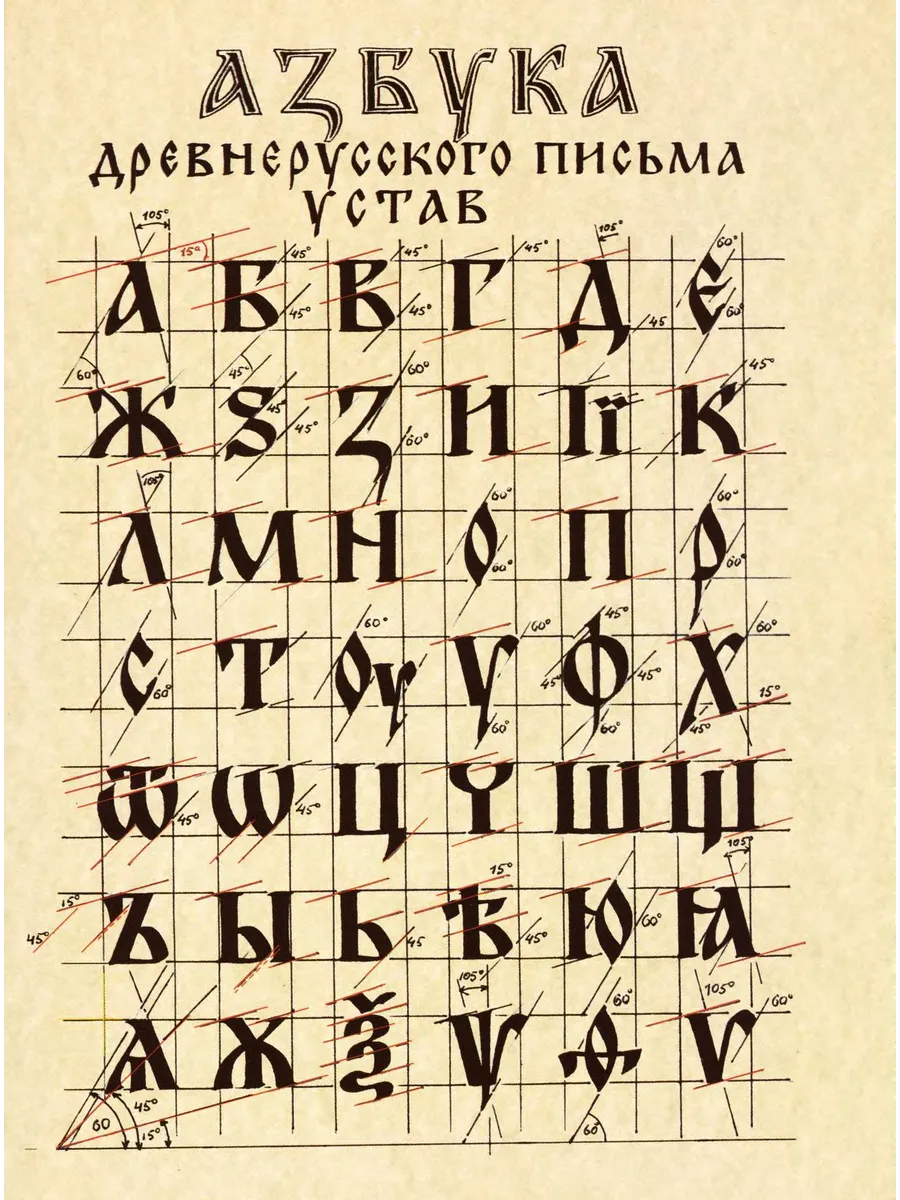 АЗБУКА
ДРЕВНЕРУССКОГО ПИСЬМА
УСТАВ
105° 105°
15° 45° 45° 45° 60°
А Б В Г Д Є
45° 45° 45 60°
60° 45° 60° 45°
Ж Ѕ З И І Ї К
45° 45° 60°
105° 60° 60°
Л М Н О П Р
60° 60°
60° 60° 45° 60°
С Т Оу У Ф Х
60° 45° 45° 15°
60° 60° 45°
Ѿ Ѡ Ц Ч Ш Щ
45° 45°
105°
15° 15°
Ъ Ы Ь Ѣ Ю Ꙗ
45° 45 45° 60°
105° 60° 105° 60°
Ѧ Ж Ѯ Ѱ Ѳ Ѵ
60 45° 15° 60°